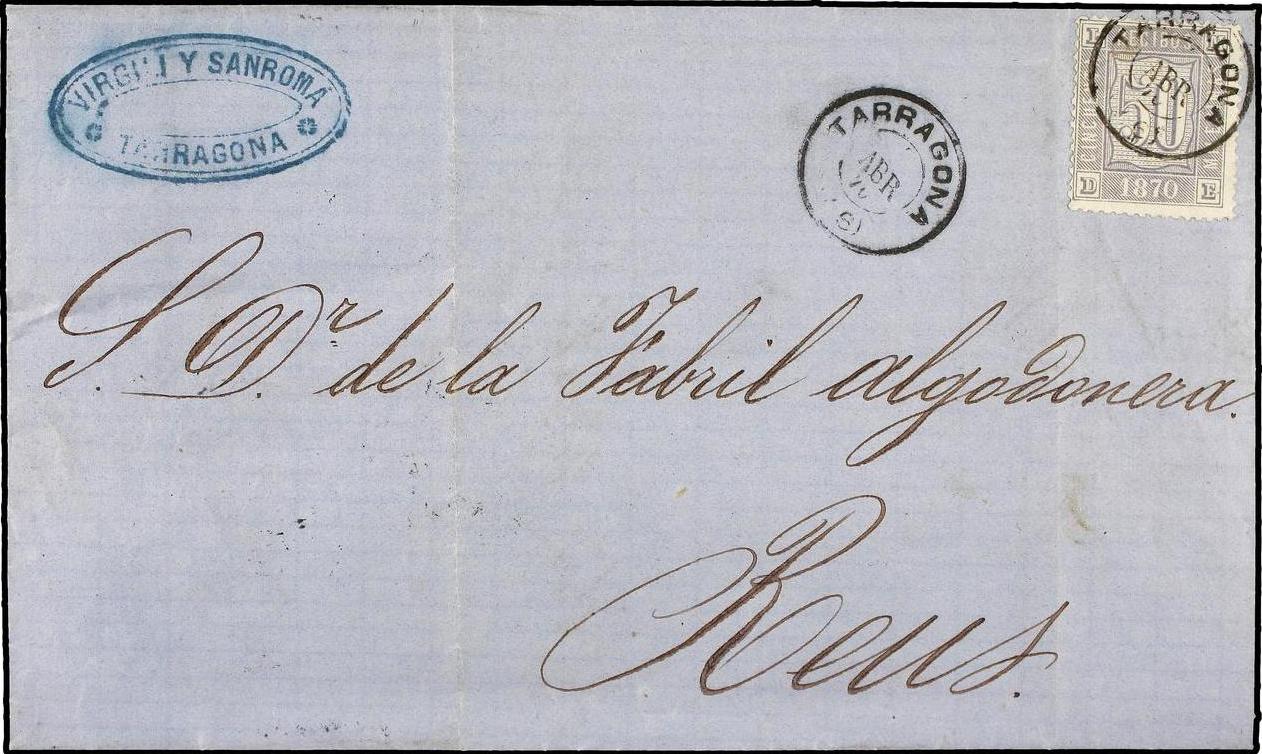 VIRGILI Y SANROMÁ
TARRAGONA
TARRAGONA
ABR
TARRAGONA
ABR
50
D 1870 E
S. Dr. de la Fabril algodonera.
Reus.